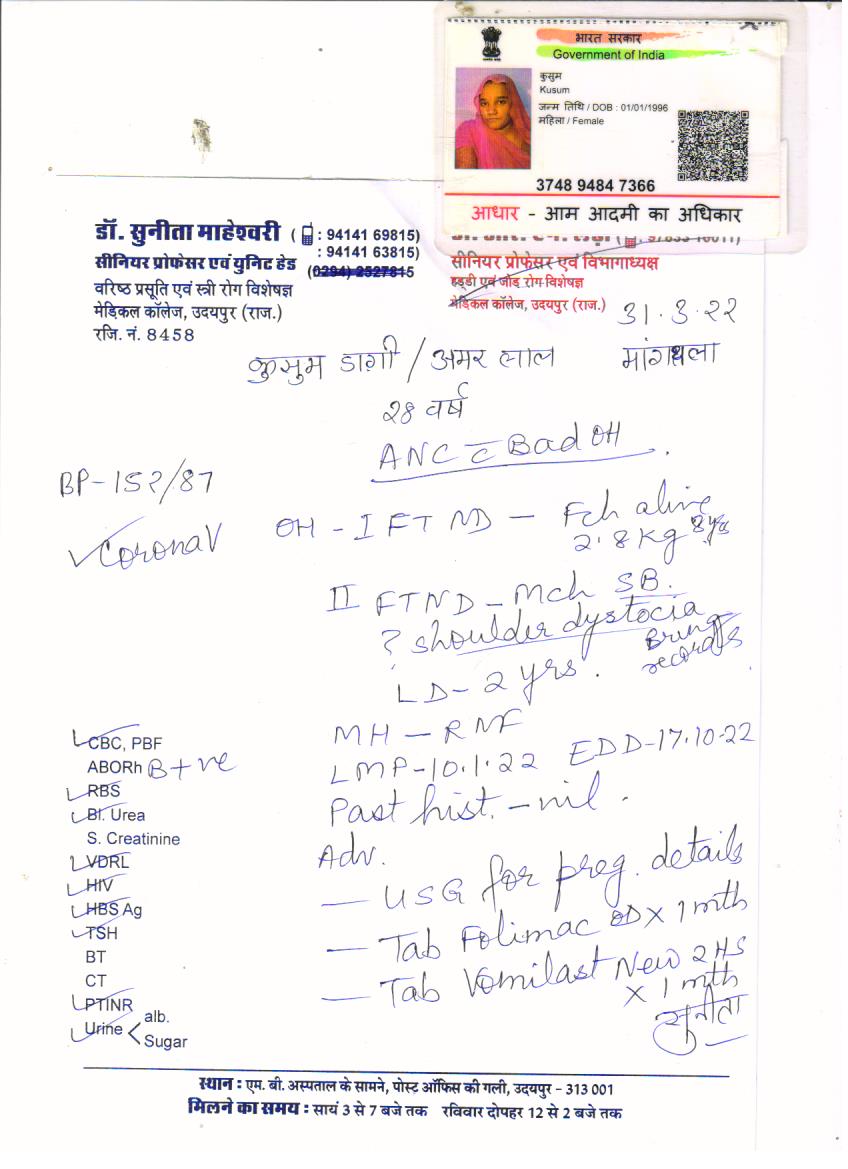 भारत सरकार
Government of India
कुसुम
Kusum
जन्म तिथि / DOB : 01/01/1996
महिला / Female
3748 9484 7366
आधार - आम आदमी का अधिकार
डॉ. सुनीता माहेश्वरी ( : 94141 69815)
: 94141 63815)
सीनियर प्रोफेसर एवं युनिट हेड (0294) 2527815
वरिष्ठ प्रसूति एवं स्त्री रोग विशेषज्ञ
मेडिकल कॉलेज, उदयपुर (राज.)
रजि. नं. 8458
सीनियर प्रोफेसर एवं विभागाध्यक्ष
हड्डी एवं जोड़ रोग विशेषज्ञ
मेडिकल कॉलेज, उदयपुर (राज.)
31.3.22
कुसुम डागी / अमर लाल
28 वर्ष
ANC c̄ Bad OH
BP-152/87
Corona V
OH - I FTND - Fch alive
2.8 Kg 3 yrs
II FTND - Mch SB.
? shoulder dystocia
Bring records
LD - 2 yrs.
MH - RMF
LMP-10.1.22 EDD-17.10.22
Past hist. - nil.
Adv.
- USG for preg. details
- Tab Folimac OD x 1 mth
- Tab Vomilast New 2 HS
x 1 mth
सुनीता
CBC, PBF
ABORh B+ve
RBS
Bl. Urea
S. Creatinine
VDRL
HIV
HBS Ag
TSH
BT
CT
PTINR
Urine < alb.
Sugar
स्थान : एम. बी. अस्पताल के सामने, पोस्ट ऑफिस की गली, उदयपुर - 313 001
मिलने का समय : सायं 3 से 7 बजे तक रविवार दोपहर 12 से 2 बजे तक